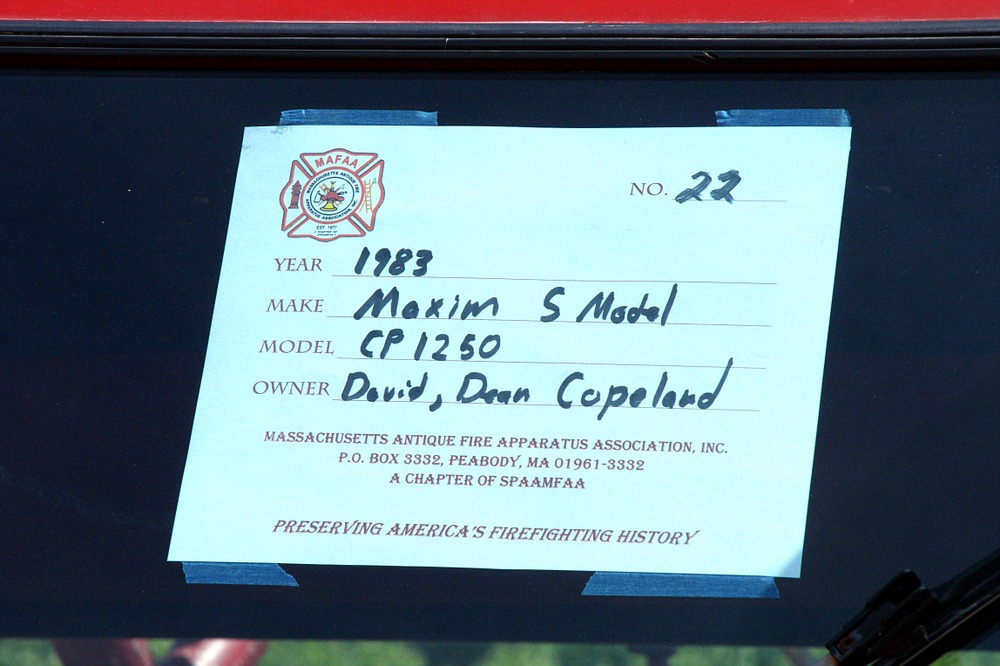 MAFAA
MASSACHUSETTS ANTIQUE FIRE
APPARATUS ASSOCIATION, INC.
EST. 1977
A CHAPTER OF
SPAAMFAA
NO. 22
YEAR 1983
MAKE Maxim S Model
MODEL CP 1250
OWNER David, Dean Copeland
MASSACHUSETTS ANTIQUE FIRE APPARATUS ASSOCIATION, INC.
P.O. BOX 3332, PEABODY, MA 01961-3332
A CHAPTER OF SPAAMFAA
PRESERVING AMERICA'S FIREFIGHTING HISTORY